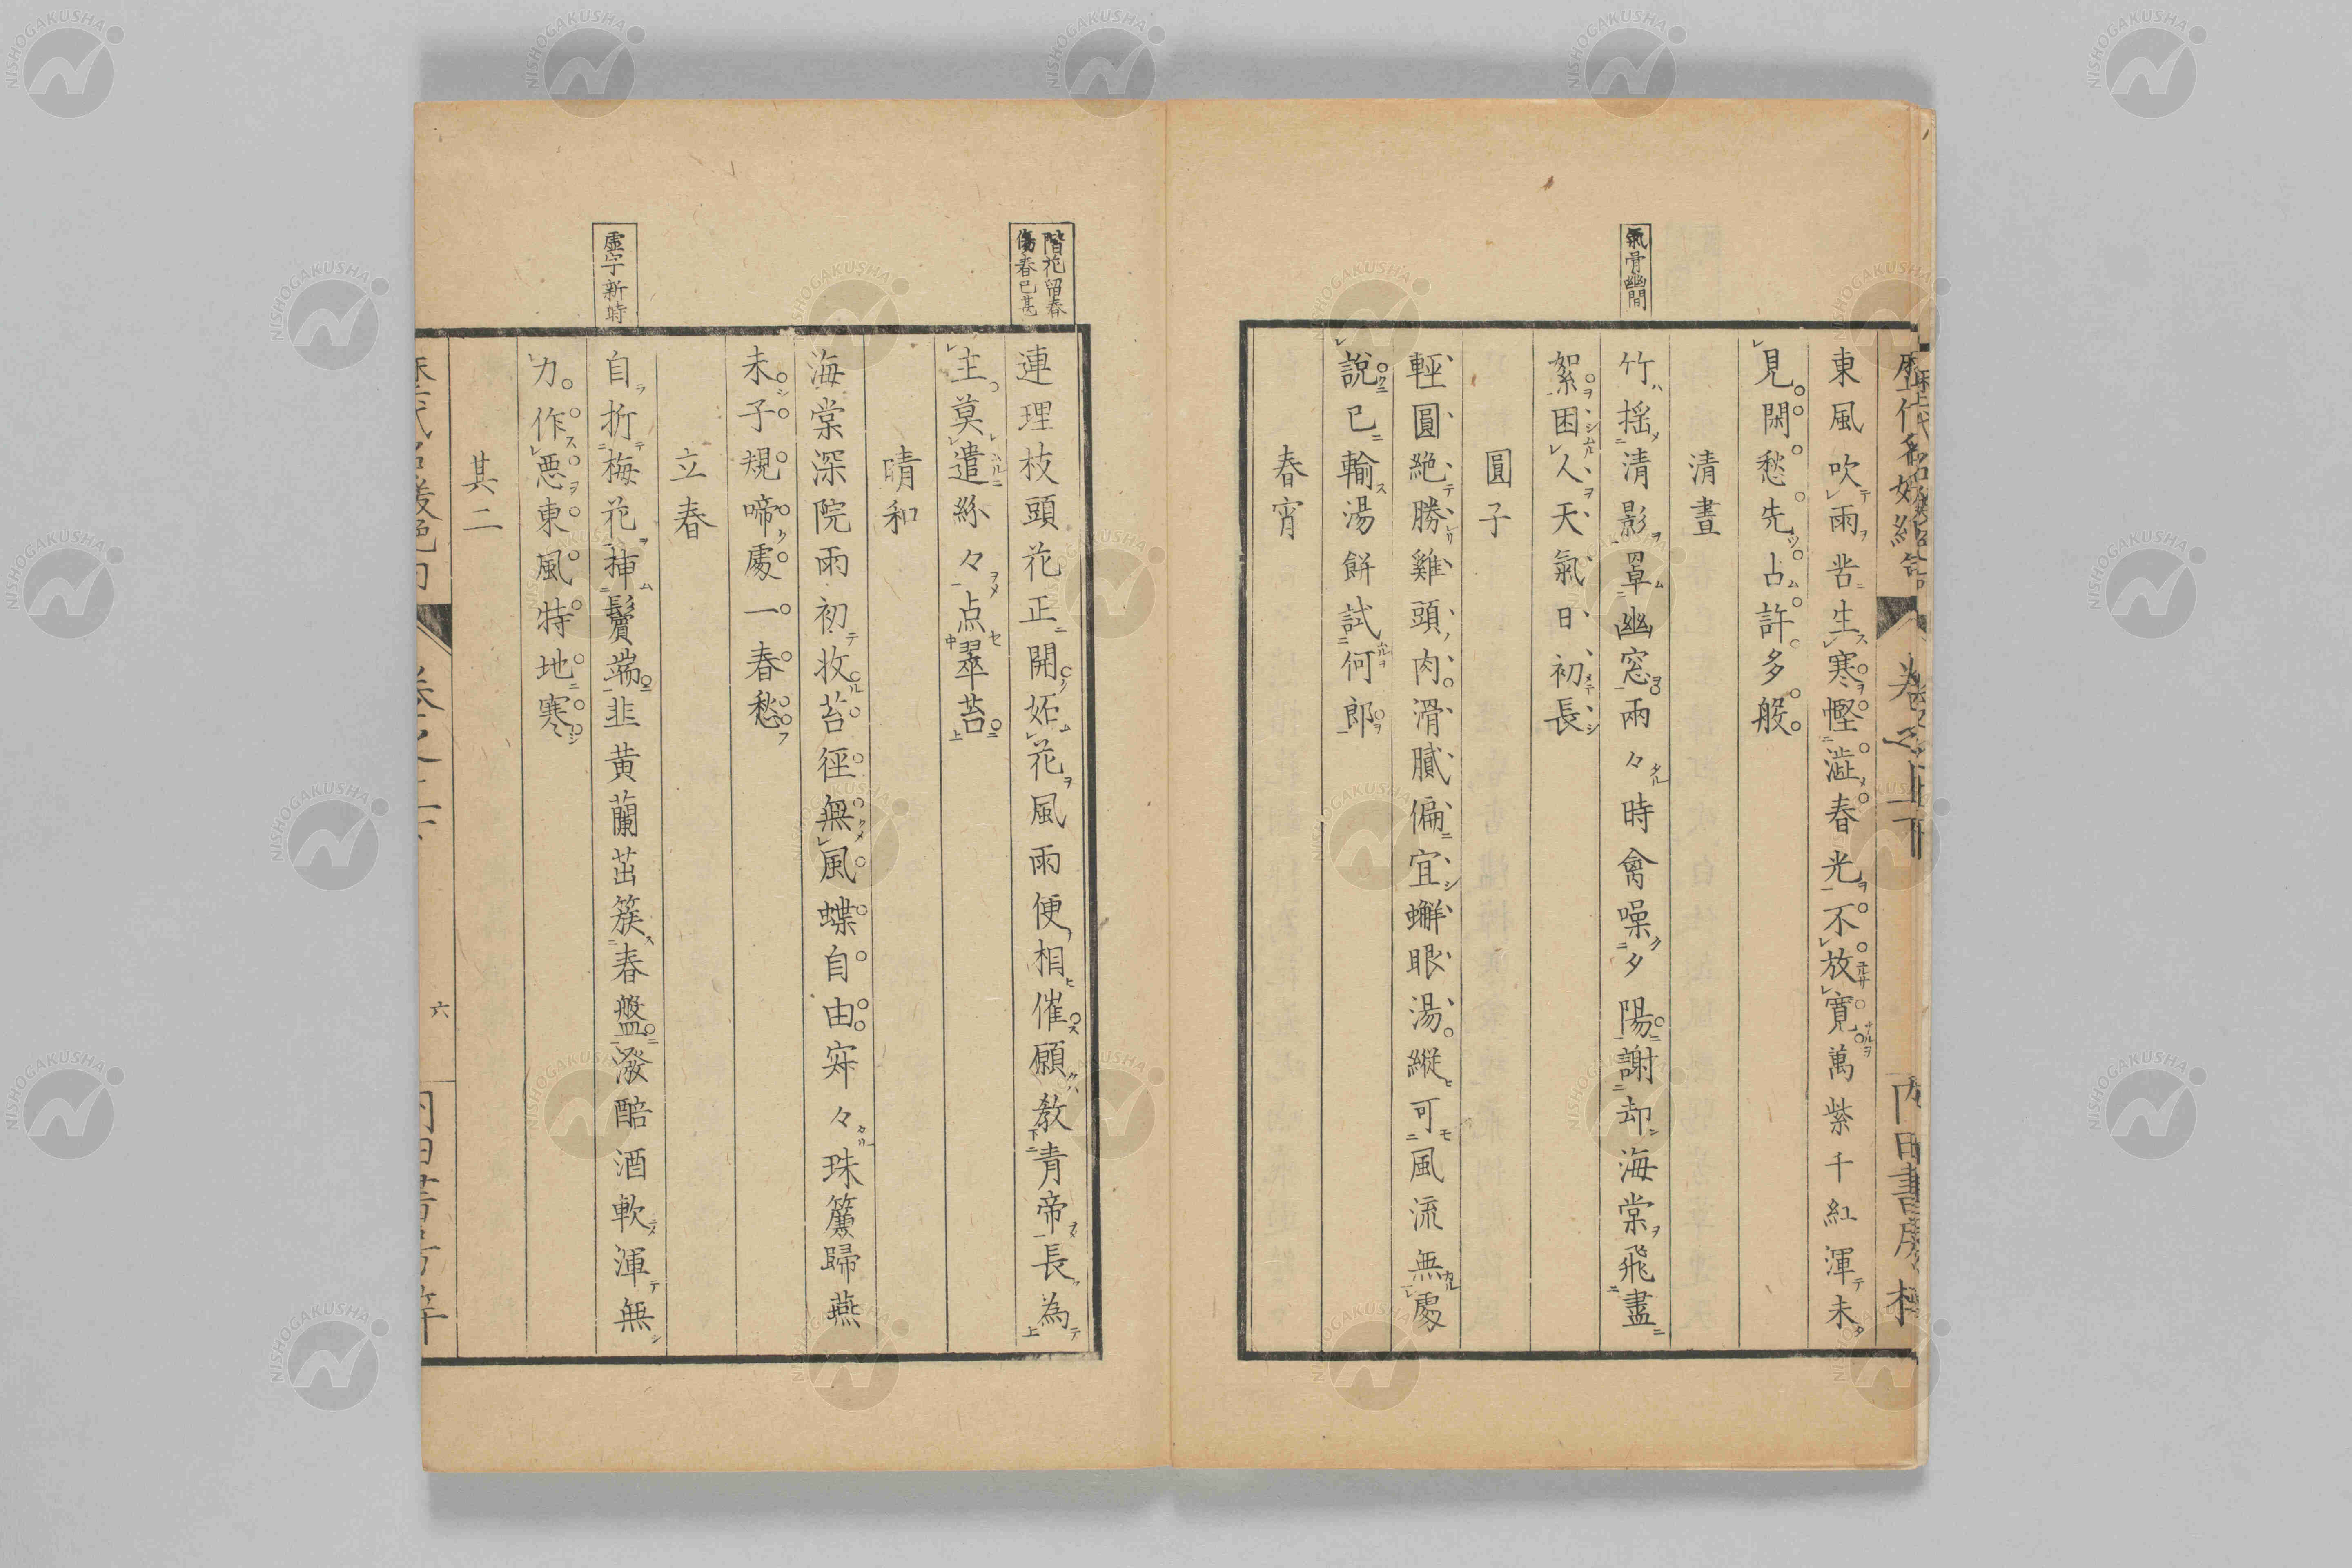 氣骨幽間
東風吹雨苦生寒慳澁春光不放寬萬紫千紅渾未
見閑愁先占許多般
清晝
竹搖清影罩幽窓兩々時禽噪夕陽謝却海棠飛盡
絮困人天氣日初長
圓子
輕圓絶勝雞頭肉滑膩偏宜蠏眼湯縱可風流無處
說已輸湯餅試何郎
春宵
階花留春
傷春已甚
連理枝頭花正開妬花風雨便相催願教青帝長為
主莫遣絲々点翠苔
晴和
海棠深院雨初收苔徑無風蝶自由寂々珠簾歸燕
未子規啼處一春愁
立春
虛字新時
自折梅花挿鬢端韭黃蘭茁簇春盤潑醅酒軟渾無
力作惡東風特地寒
其二
六
NISHOGAKUSHA